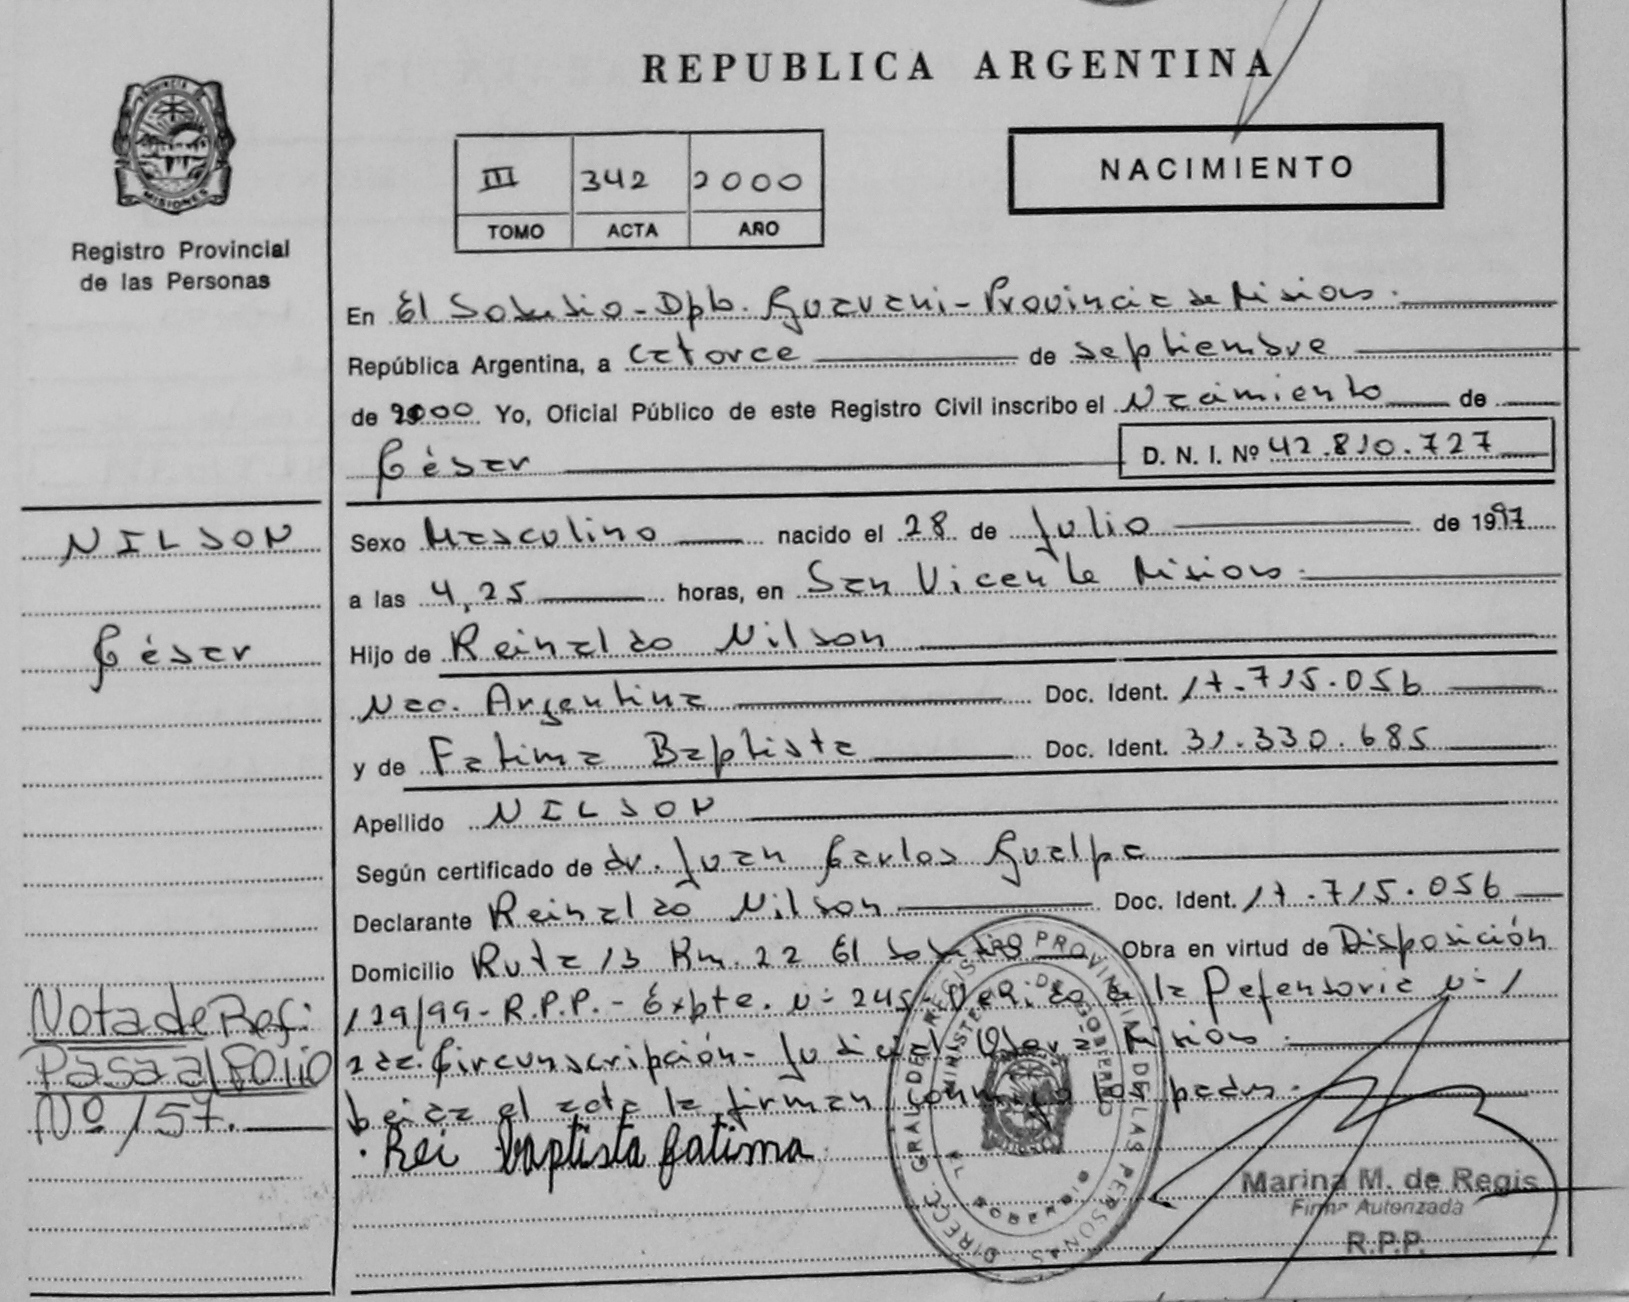 REPUBLICA ARGENTINA
PROVINCIA DE
MISIONES
Registro Provincial
de las Personas
III 342 2000
TOMO ACTA AÑO
NACIMIENTO
En El Soberbio - Dpto. Guaraní - Provincia de Misiones.
República Argentina, a catorce de septiembre
de 2000 Yo, Oficial Público de este Registro Civil inscribo el Nacimiento de
César D. N. I. Nº 42.810.727
NILSON
César
Sexo Masculino nacido el 28 de Julio de 1997
a las 4,25 horas, en San Vicente Misiones.
Hijo de Reinaldo Nilson
Nac. Argentina Doc. Ident. 17.715.056
y de Fatima Baptista Doc. Ident. 31.330.685
Apellido NILSON
Según certificado de dr. Juan Carlos Gualpa
Declarante Reinaldo Nilson Doc. Ident. 17.715.056
Domicilio Ruta 13 Km. 22 El Soberbio Obra en virtud de Disposición
129/99 - R.P.P. - Expte. Nº 245 - de la Defensoría Nº 1
2da. Circunscripción - Judicial Oberá - Misiones.
el acta la firman conmigo los padres.
Rei baptista fatima
Nota de Ref:
Pasa al Folio
Nº 157.
DIRECC. GRAL DEL REGISTRO PROVINCIAL DE LAS PERSONAS
MINISTERIO DE GOBIERNO
EL SOBERBIO
Marina M. de Regis
Firma Autorizada
R.P.P.